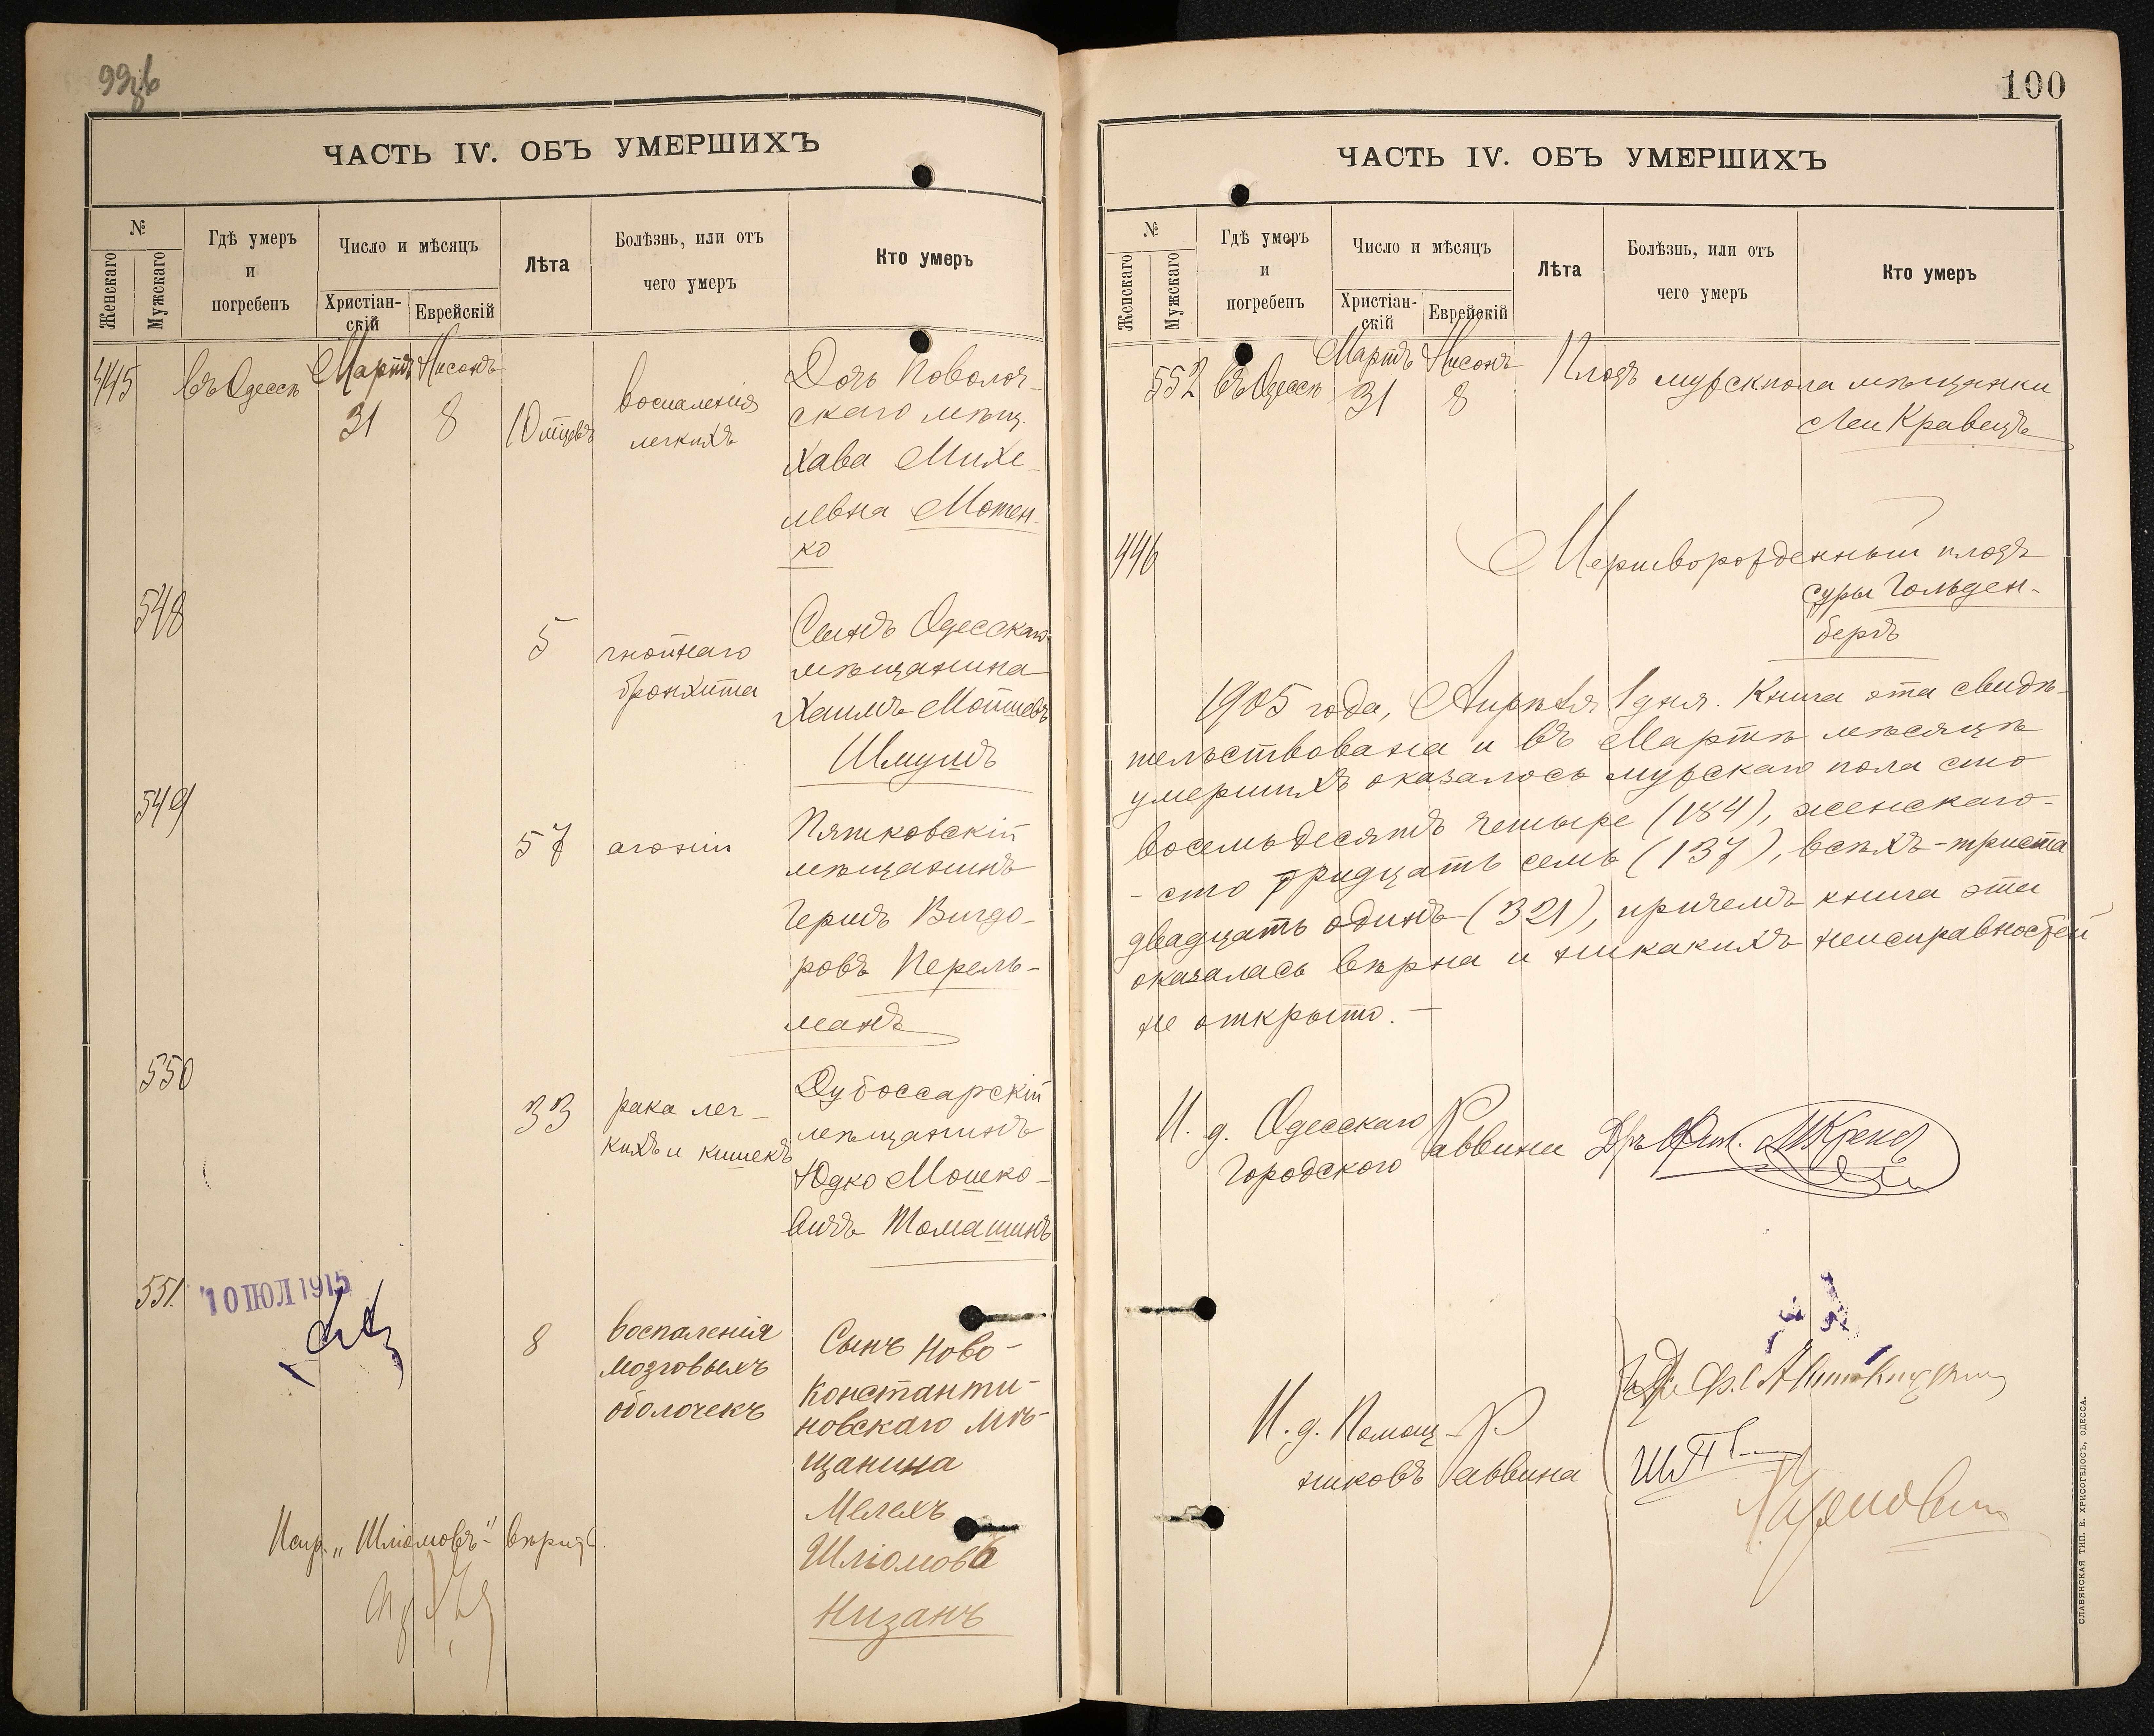 ЧАСТЬ IV. ОБЪ УМЕРШИХЪ
№
Женскаго
Мужскаго
Гдѣ умеръ
и
погребенъ
Число и мѣсяцъ
Христіан-
скій
Еврейскій
Лѣта
Болѣзнь, или отъ
чего умеръ
Кто умеръ
445
въ Одессѣ
Мартъ
31
Нисонъ
8
10 мѣсяц.
воспаленія
легкихъ
Дочь Поволоч-
скаго мѣщ.
Хава Михе-
левна Мотен-
ко
548
5
гнойнаго
бронхита
Сынъ Одесскаго
мѣщанина
Хаимъ Мойшевъ
Шмулъ
549
57
агоніи
Пятковскій
мѣщанинъ
Гершъ Вигдо-
ровъ Перель-
манъ
550
33
рака лег-
кихъ и кишекъ
Дубоссарскій
мѣщанинъ
Юдко Мошко-
вичъ Томашинъ
551.
10 ІЮЛ 1915
8
воспаленія
мозговыхъ
оболочекъ
Сынъ Ново-
Константи-
новскаго Мѣ-
щанина
Мелехъ
Шліомовъ
Низанъ
Испр. „Шліомовъ" вѣрить.
100
ЧАСТЬ IV. ОБЪ УМЕРШИХЪ
№
Женскаго
Мужскаго
Гдѣ умеръ
и
погребенъ
Число и мѣсяцъ
Христіан-
скій
Еврейскій
Лѣта
Болѣзнь, или отъ
чего умеръ
Кто умеръ
552
въ Одессѣ
Мартъ
31
Нисонъ
8
Плодъ мужск пола мѣщанки
Леи Кравецъ
446
Мертворожденный плодъ
Суры Гольден-
бергъ
1905 года, Апрѣля 1 дня. Книга эта свидѣ-
тельствована и въ Мартѣ мѣсяцѣ
умершихъ оказалось мужскаго пола сто
восемьдесятъ четыре (184), женскаго-
- сто тридцать семь (137), всѣхъ - триста
двадцать одинъ (321), причемъ книга эта
оказалась вѣрна и никакихъ неисправностей
не открыто. —
И. д. Одесскаго
Городского Раввина
И. д. Помощ-
никовъ Раввина
СЛАВЯНСКАЯ ТИП. Е. ХРИСОГЕЛОСЪ, ОДЕССА.